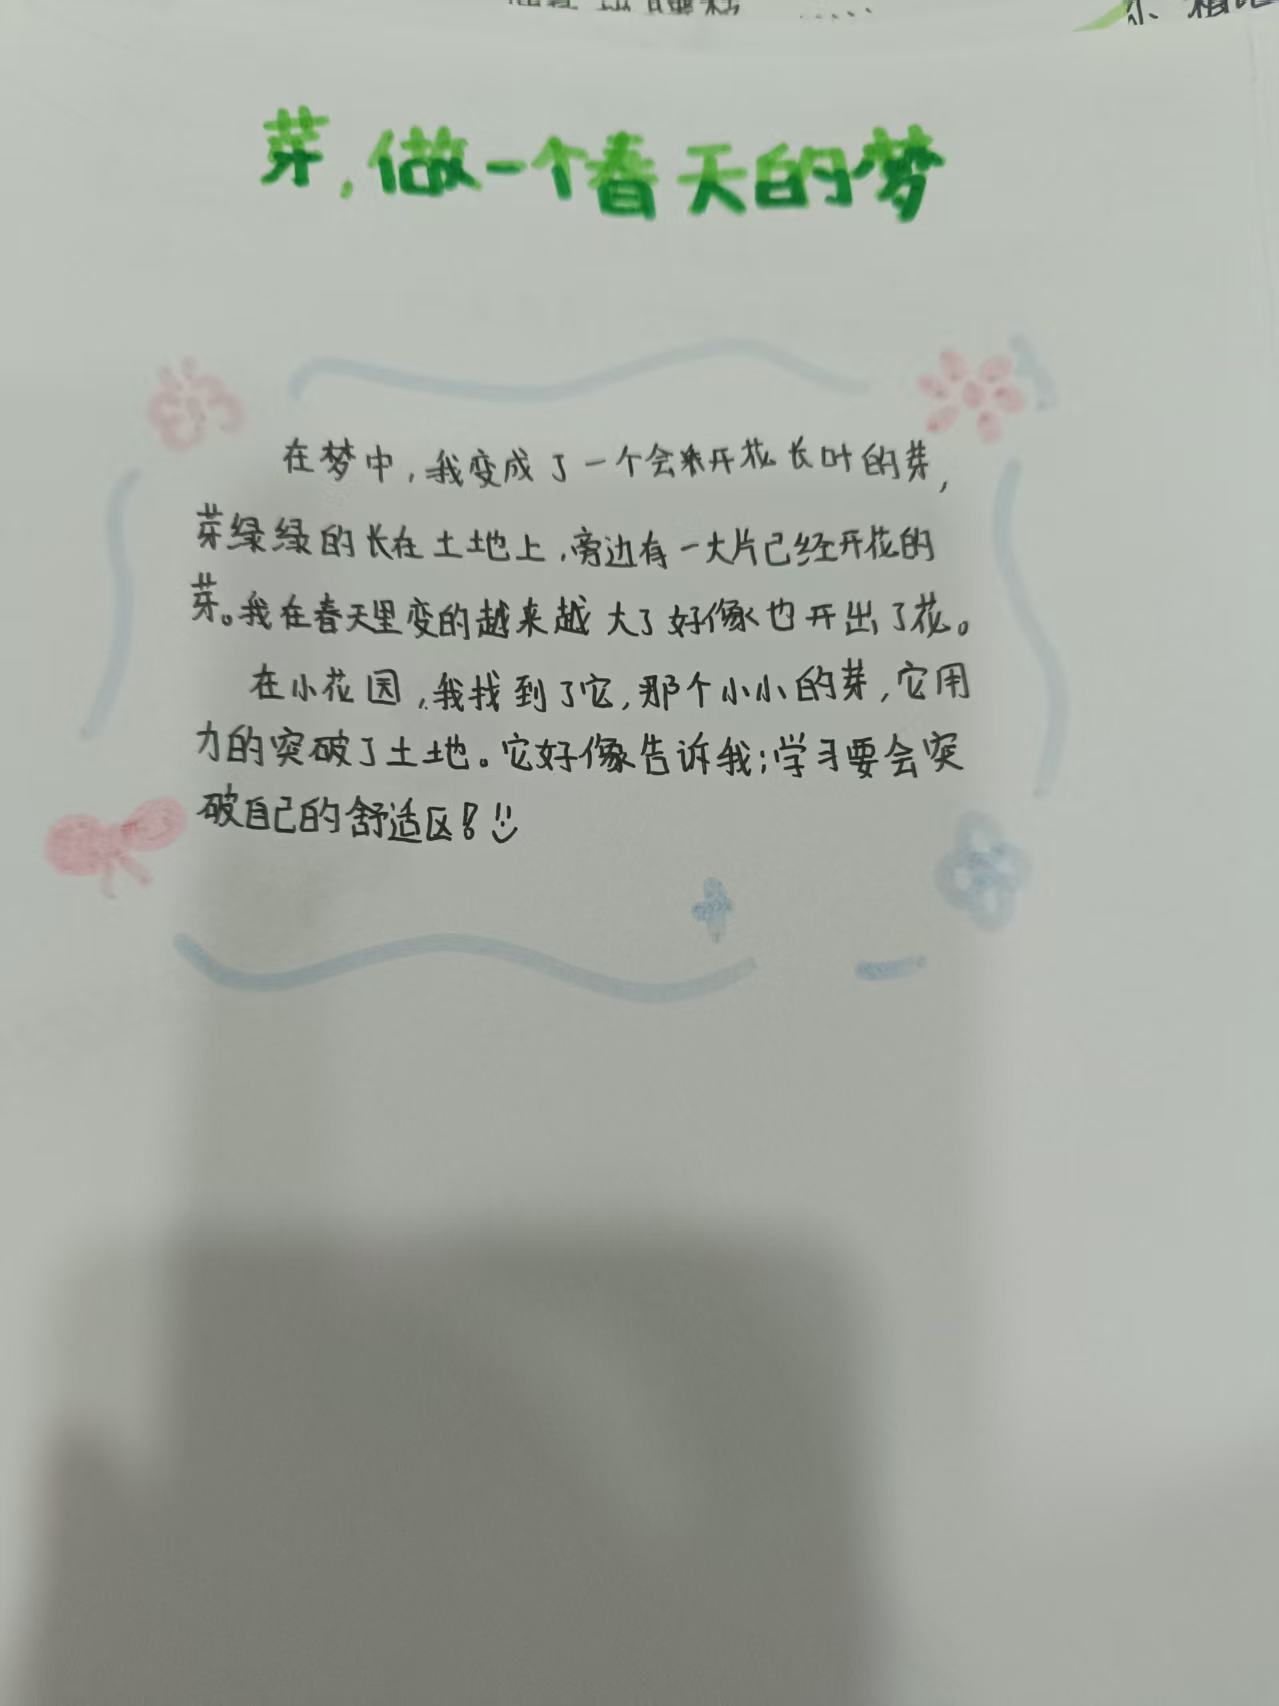 芽,做一个春天的梦
在梦中,我变成了一个会开花长叶的芽,
芽绿绿的长在土地上,旁边有一大片已经开花的
芽。我在春天里变的越来越大了好像也开出了花。
在小花园,我找到了它,那个小小的芽,它用
力的突破了土地。它好像告诉我:学习要会突
破自己的舒适区!